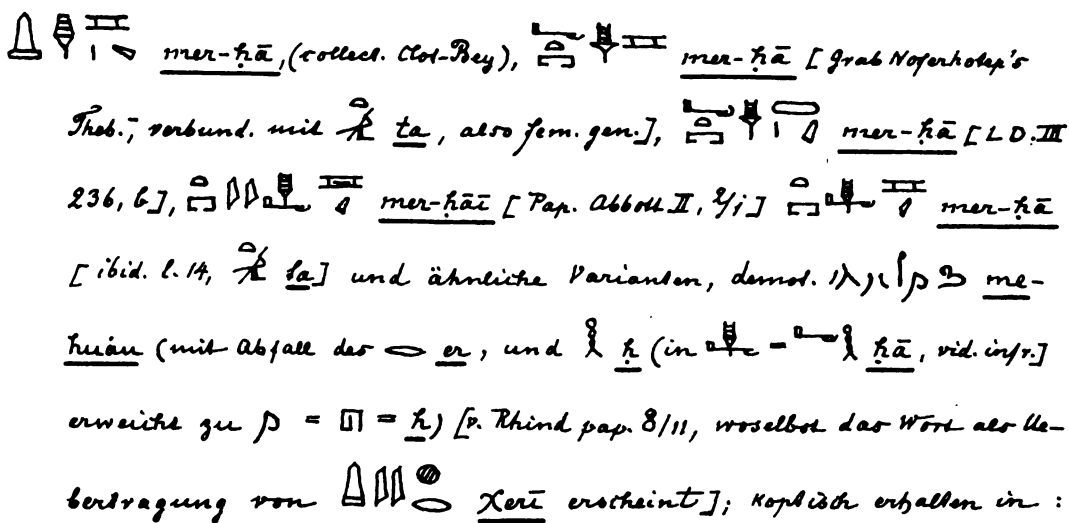 mer-ḥā, (collect. Clot-Bey), mer-ḥā [Grab Noferhotep's
Theb., verbund. mit ta, also fem. gen.], mer-ḥā [L D. III
236, b], mer-ḥāī [Pap. Abbott II, 2/1] mer-ḥā
[ibid. l. 14, ta] und ähnliche Varianten, demot. me-
huáu (mit Abfall des er, und ḥ (in = ḥā, vid. infr.]
erweicht zu = = h) [v. Rhind pap. 8/11, woselbst das Wort als Ue-
bertragung von Xerī erscheint]; koptisch erhalten in :